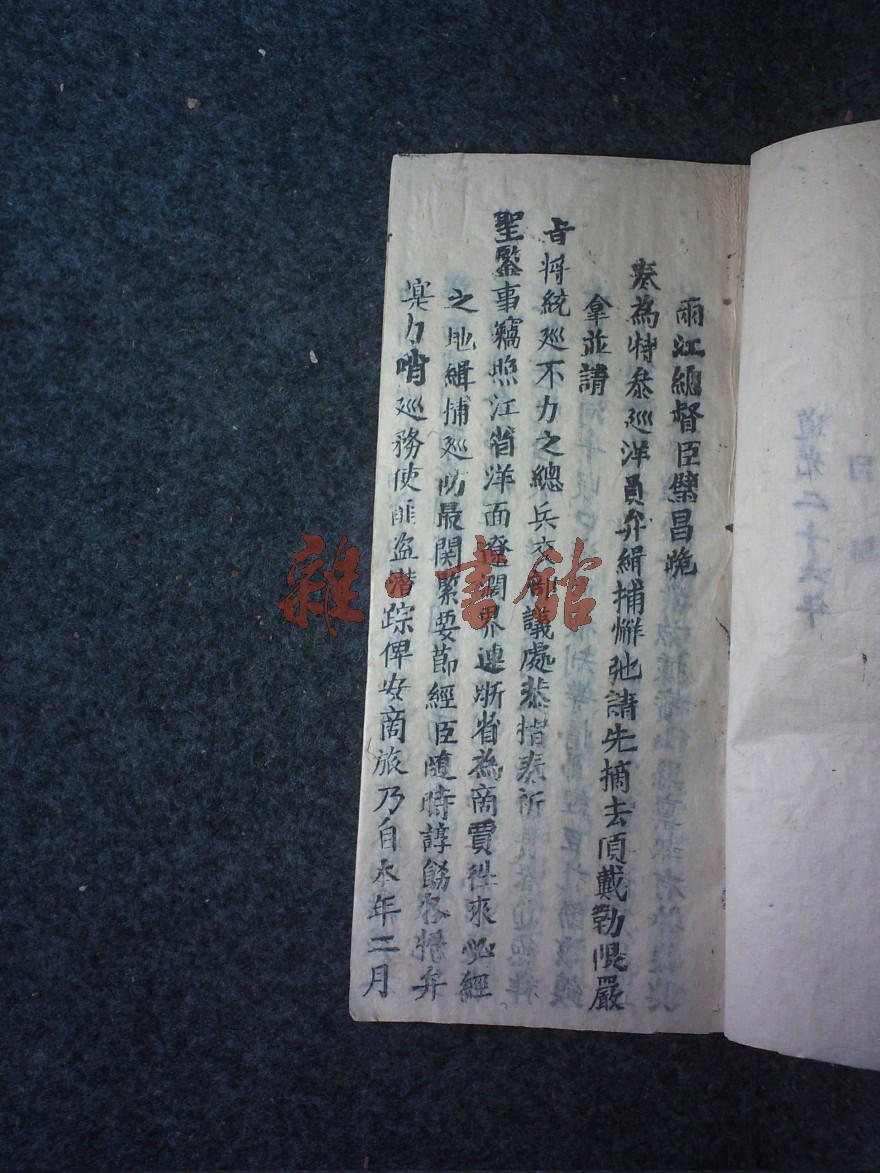 兩江總督臣璧昌跪
奏為特叅巡洋員弁緝捕懈弛請先摘去頂戴勒限嚴
拿並請
旨將統巡不力之總兵交部議處恭摺奏祈
聖鑒事竊照江省洋面遼濶界連浙省為商賈徃來必經
之地緝捕巡防最関緊要節經臣隨時諄飭各將弁
寔力哨巡務使匪盜潛踪俾安商旅乃自本年二月
道光二十六年
雜·書館